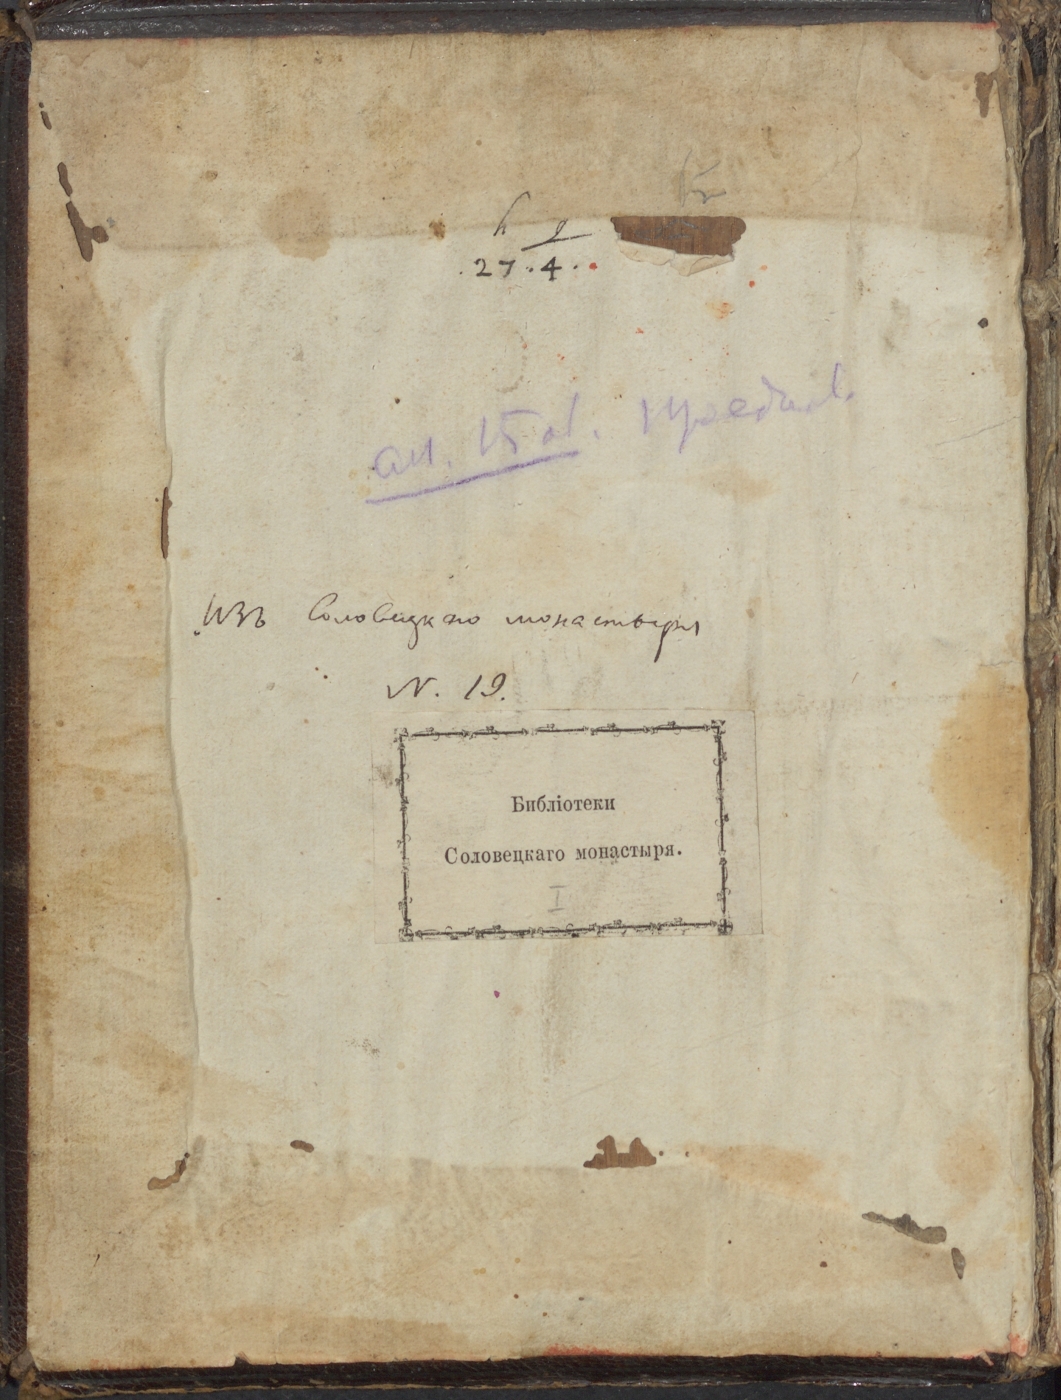 .27.4.
Изъ Соловецкаго монастыря
N. 19.
Библіотеки
Соловецкаго монастыря.
I